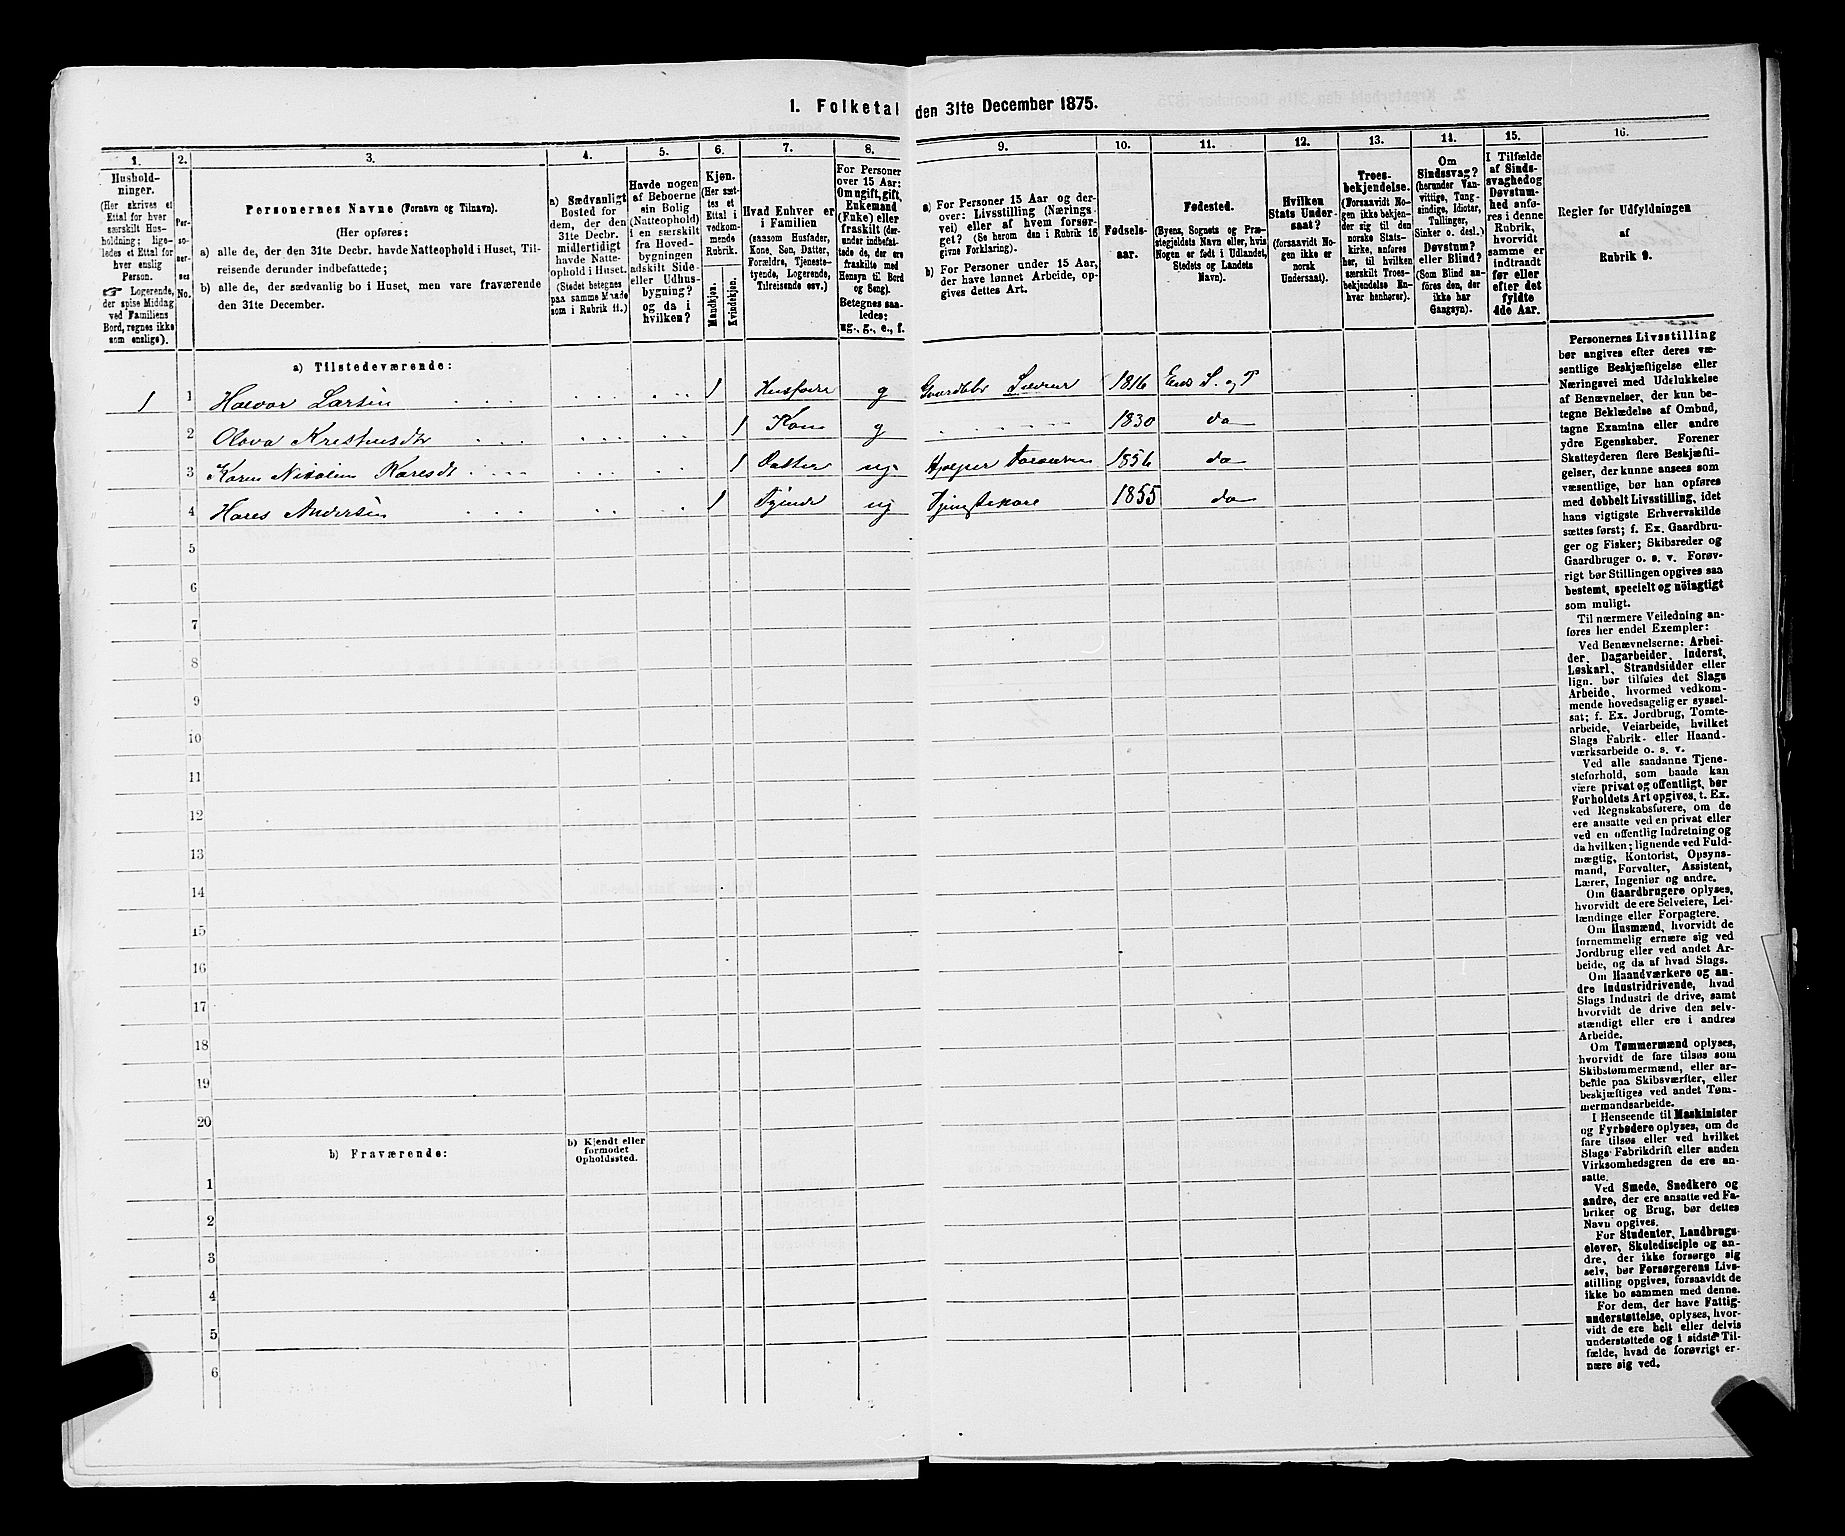 1. Folketal den 31te December 1875.
1.
Hushold-
ninger.
(Her skrives et
Ettal for hver
særskilt Hus-
holdning; lige-
ledes et Ettal for
hver enslig
Person.
☞ Logerende,
der spise Middag
ved Familiens
Bord, regnes ikke
som enslige).
2.
Per-
so-
ner-
nes
No.
3.
Personernes Navne (Fornavn og Tilnavn).
(Her opføres:
a) alle de, der den 31te Decbr. havde Natteophold i Huset, Til-
reisende derunder indbefattede;
b) alle de, der sædvanlig bo i Huset, men vare fraværende
den 31te December.
4.
a) Sædvanligt
Bosted for
dem, der den
31te Decbr.
midlertidigt
havde Natte-
ophold i Huset.
(Stedet betegnes
paa samme Maade
som i Rubrik 11.)
5.
Havde nogen
af Beboerne
sin Bolig
(Natteophold)
i en særskilt
fra Hoved-
bygningen
adskilt Side-
eller Udhus-
bygning?
og da i
hvilken?
6.
Kjøn.
(Her sæt-
tes et
Ettal i
vedkom-
mende
Rubrik.
Mandkjøn.
Kvindekjøn.
7.
Hvad Enhver er
i Familien
(saasom Husfader,
Kone, Søn, Datter,
Forældre, Tjeneste-
tyende, Logerende,
Tilreisende osv.)
8.
For Personer
over 15 Aar:
Om ugift, gift,
Enkemand
(Enke) eller
fraskilt (der-
under indbefat-
tede de, der ere
fraskilte med
Hensyn til Bord
og Seng).
Betegnes saa-
ledes:
ug., g., e., f.
9.
a) For Personer 15 Aar og der-
over: Livsstilling (Nærings-
vei) eller af hvem forsør-
get? (Se herom den i Rubrik 16
givne Forklaring).
b) For Personer under 15 Aar,
der have lønnet Arbeide, op-
gives dettes Art.
10.
Fødsels-
aar.
11.
Fødested.
(Byens, Sognets og Præ-
stegjeldets Navn eller, hvis
Nogen er født i Udlandet,
Stedets og Landets
Navn).
12.
Hvilken
Stats Under-
saat?
(forsaavidt No-
gen ikke er
norsk
Undersaat).
13.
Troes-
bekjendelse.
(Forsaavidt No-
gen ikke bekjen-
der sig til den
norske Stats-
kirke, anføres
her, til hvilken
særskilt Troes-
bekjendelse En-
hver henhører).
14.
Om
Sindssvag?
(herunder Van-
vittige, Tung-
sindige, Idioter,
Tullinger,
Sinker o. desl.)
Døvstum?
eller Blind?
(Som Blind an-
føres den, der
ikke har
Gangsyn).
15.
I Tilfælde
af Sinds-
svaghed og
Døvstum-
hed anfø-
res i denne
Rubrik,
hvorvidt
samme er
indtraadt
før eller
efter det
fyldte
4de Aar.
16.
Regler for Udfyldningen
af
Rubrik 9.
a) Tilstedeværende:
1 1 Halvor Larsen 1 Husfader g Gaardbr Selveier 1816 Eids S. og P
2 Olava Kristensdtr 1 Kone g 1830 do
3 Karen Nikoline Karesdt 1 Datter ug Hjælper 1856 do
4 Hares Andersen 1 Tjende ug Tjenestekare 1855 do
5
6
7
8
9
10
11
12
13
14
15
16
17
18
19
20
b) Fraværende:
b) Kjendt eller
formodet
Opholdssted.
1
2
3
4
5
6
Personernes Livsstilling
bør angives efter deres væ-
sentlige Beskjæftigelse eller
Næringsvei med Udelukkelse
af Benævnelser, der kun be-
tegne Beklædelse af Ombud,
tagne Examina eller andre
ydre Egenskaber. Forener
Skatteyderen flere Beskjæfti-
gelser, der kunne ansees som
væsentlige, bør han opføres
med dobbelt Livsstilling, idet
hans vigtigste Erhvervskilde
sættes først; f. Ex. Gaardbru-
ger og Fisker; Skibsreder og
Gaardbruger o. s. v. Forøv-
rigt bør Stillingen opgives saa
bestemt, specielt og nöiagtigt
som muligt.
Til nærmere Veiledning an-
føres her endel Exempler:
Ved Benævnelserne: Arbei-
der, Dagarbeider, Inderst,
Løskarl, Strandsidder eller
lign. bør tilføies det Slags
Arbeide, hvormed vedkom-
mende hovedsagelig er syssel-
sat; f. Ex. Jordbrug, Tomte-
arbeide, Veiarbeide, hvilket
Slags Fabrik- eller Haand-
værksarbeide o. s. v.
Ved alle saadanne Tjene-
steforhold, som baade kan
være privat og offentligt, bør
Forholdets Art opgives, t. Ex.
ved Regnskabsførere, om de
ere ansatte ved en privat eller
ved en offentlig Indretning og
da hvilken; lignende ved Fuld-
mægtig, Kontorist, Opsyns-
mand, Forvalter, Assistent,
Lærer, Ingeniør og andre.
Om Gaardbrugere oplyses,
hvorvidt de ere Selveiere, Lei-
lændinge eller Forpagtere.
Om Husmænd, hvorvidt de
fornemmelig ernære sig ved
Jordbrug eller ved andet Ar-
beide, og da af hvad Slags.
Om Haandværkere og an-
dre Industridrivende, hvad
Slags Industri de drive, samt
hvorvidt de drive den selv-
stændigt eller ere i andres
Arbeide.
Om Tømmermænd oplyses,
hvorvidt de fare tilsøs som
Skibstømmermænd, eller ar-
beide paa Skibsværfter, eller
beskjæftiges ved andet Tøm-
mermandsarbeide.
I Henseende til Maskinister
og Fyrbødere oplyses, om de
fare tilsøs eller ved hvilket
Slags Fabrikdrift eller anden
Virksomhedsgren de ere an-
satte.
Ved Smede, Snedkere og
andre, der ere ansatte ved Fa-
briker og Brug, bør dettes
Navn opgives.
For Studenter, Landbrugs-
elever, Skoledisciple og an-
dre, der ikke forsørge sig
selv, bør Forsørgerens Livs-
stilling opgives, forsaavidt de
ikke bo sammen med denne.
For dem, der have Fattig-
understøttelse, oplyses, hvor-
vidt de ere helt eller delvis
understøttede og i sidste Til-
fælde, hvad de forøvrigt er-
nære sig ved.